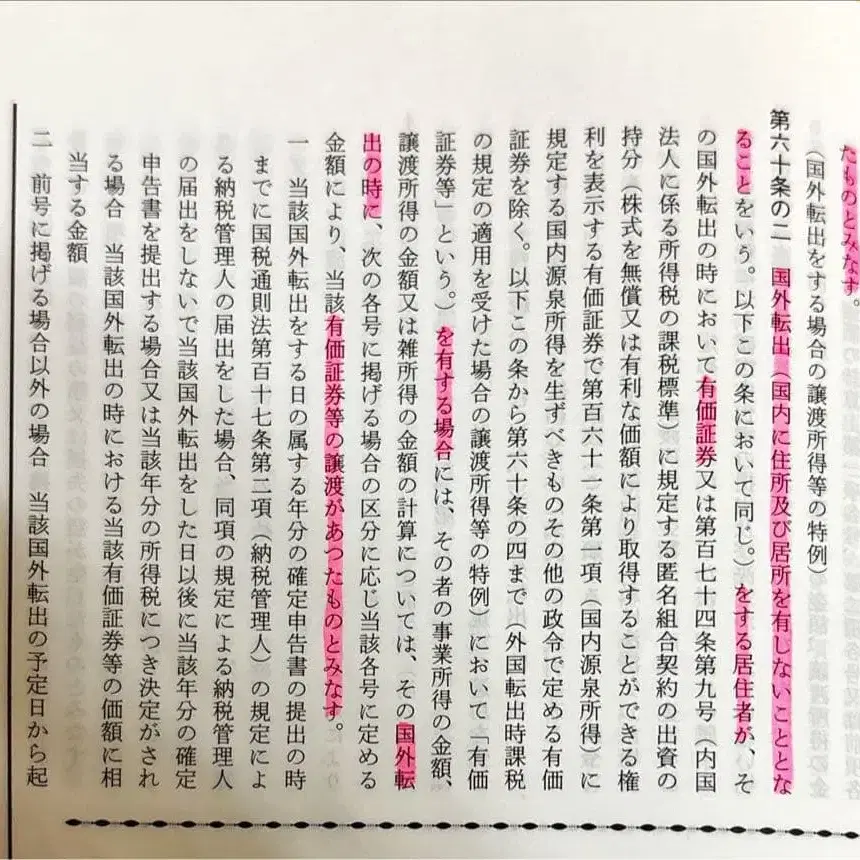 たものとみなす
（国外転出をする場合の譲渡所得等の特例）
第六十条の二　国外転出（国内に住所及び居所を有しないこととな
ることをいう。以下この条において同じ。）をする居住者が、そ
の国外転出の時において有価証券又は第百七十四条第九号（内国
法人に係る所得税の課税標準）に規定する匿名組合契約の出資の
持分（株式を無償又は有利な価額により取得することができる権
利を表示する有価証券で第百六十一条第一項（国内源泉所得）に
規定する国内源泉所得を生ずべきものその他の政令で定める有価
証券を除く。以下この条から第六十条の四まで（外国転出時課税
の規定の適用を受けた場合の譲渡所得等の特例）において「有価
証券等」という。）を有する場合には、その者の事業所得の金額、
譲渡所得の金額又は雑所得の金額の計算については、その国外転
出の時に、次の各号に掲げる場合の区分に応じ当該各号に定める
金額により、当該有価証券等の譲渡があつたものとみなす。
一　当該国外転出をする日の属する年分の確定申告書の提出の時
までに国税通則法第百十七条第二項（納税管理人）の規定によ
る納税管理人の届出をした場合、同項の規定による納税管理人
の届出をしないで当該国外転出をした日以後に当該年分の確定
申告書を提出する場合又は当該年分の所得税につき決定がされ
る場合　当該国外転出の時における当該有価証券等の価額に相
当する金額
二　前号に掲げる場合以外の場合　当該国外転出の予定日から起